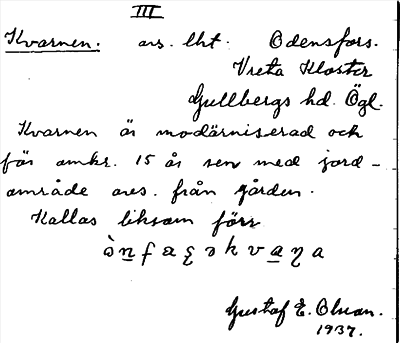 III
Kvarnen. avs. lht. Odensfors.
Vreta Kloster
Gullbergs hd. Ögl.
Kvarnen är modärniserad och
för omkr. 15 år sen med jord-
område avs. från gården.
Kallas liksom förr
Gustaf E. Olsson.
1937.